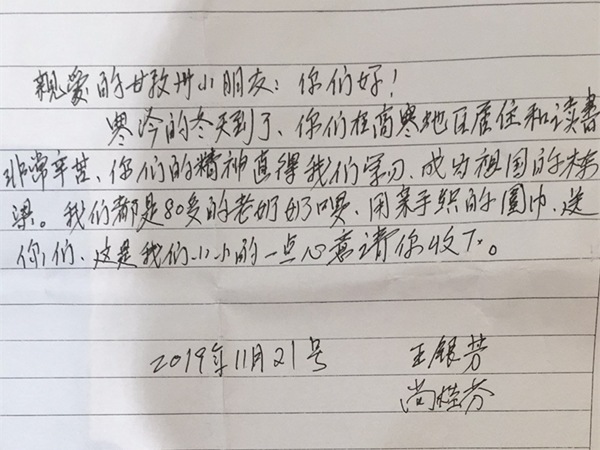 親爱的甘孜州小朋友：你们好！
寒冷的冬天到了、你们在高寒地区居住和读書
非常辛苦、你们的精神直得我们学习、成为祖国的栋
梁。我们都是80多的老奶奶、用亲手织的围巾、送
你们、这是我们小小的一点心意请你收下。
2019年11月21号 王银芳
尚桂芬